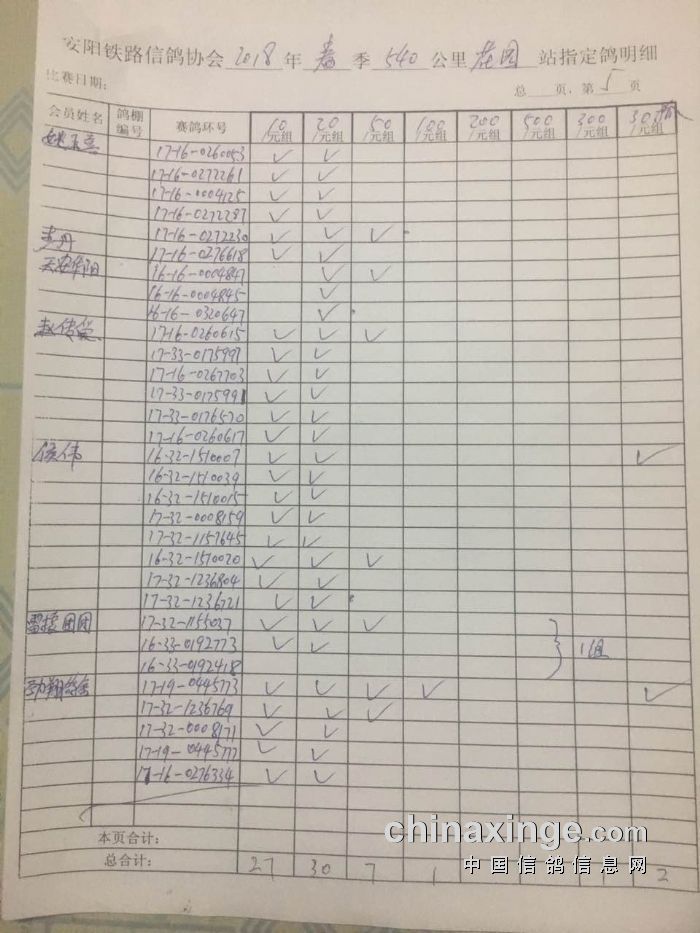 安阳铁路信鸽协会 2018 年 春 季 540 公里 花园 站指定鸽明细
比赛日期: 总 页, 第 5 页
会员姓名 鸽棚编号 赛鸽环号 10/元组 20/元组 50/元组 100/元组 200/元组 500/元组 300/元组 30/元组
17-16-0260053 ✓ ✓
17-16-0272261 ✓ ✓
17-16-0004125 ✓ ✓
17-16-0272287 ✓ ✓
17-16-0272230 ✓ ✓ ✓
李丹 17-16-0276618 ✓ ✓
16-16-0004847 ✓ ✓
16-16-0004845 ✓
16-16-0320647 ✓
17-16-0260615 ✓ ✓ ✓
17-33-0175997 ✓ ✓
17-16-0267703 ✓ ✓
17-33-0175991 ✓ ✓
17-33-0176570 ✓ ✓
17-16-0260617 ✓ ✓
侯伟 16-32-1510007 ✓ ✓ ✓
16-32-1510039 ✓ ✓
16-32-1510015 ✓ ✓
17-32-0008159 ✓ ✓
17-32-1157645 ✓ ✓
16-32-1510020 ✓ ✓ ✓
17-32-1236804 ✓ ✓
17-32-1236721 ✓ ✓
团团 17-32-1155027 ✓ ✓ ✓
16-33-0192773 ✓ ✓ 1组
16-33-0192418
17-19-0445773 ✓ ✓ ✓ ✓ ✓
17-32-1236769 ✓ ✓ ✓
17-32-0008171 ✓ ✓
17-19-0445777 ✓ ✓
17-16-0276334 ✓ ✓
本页合计:
总合计: 27 30 7 1 2
chinaxinge.com
中国信鸽信息网